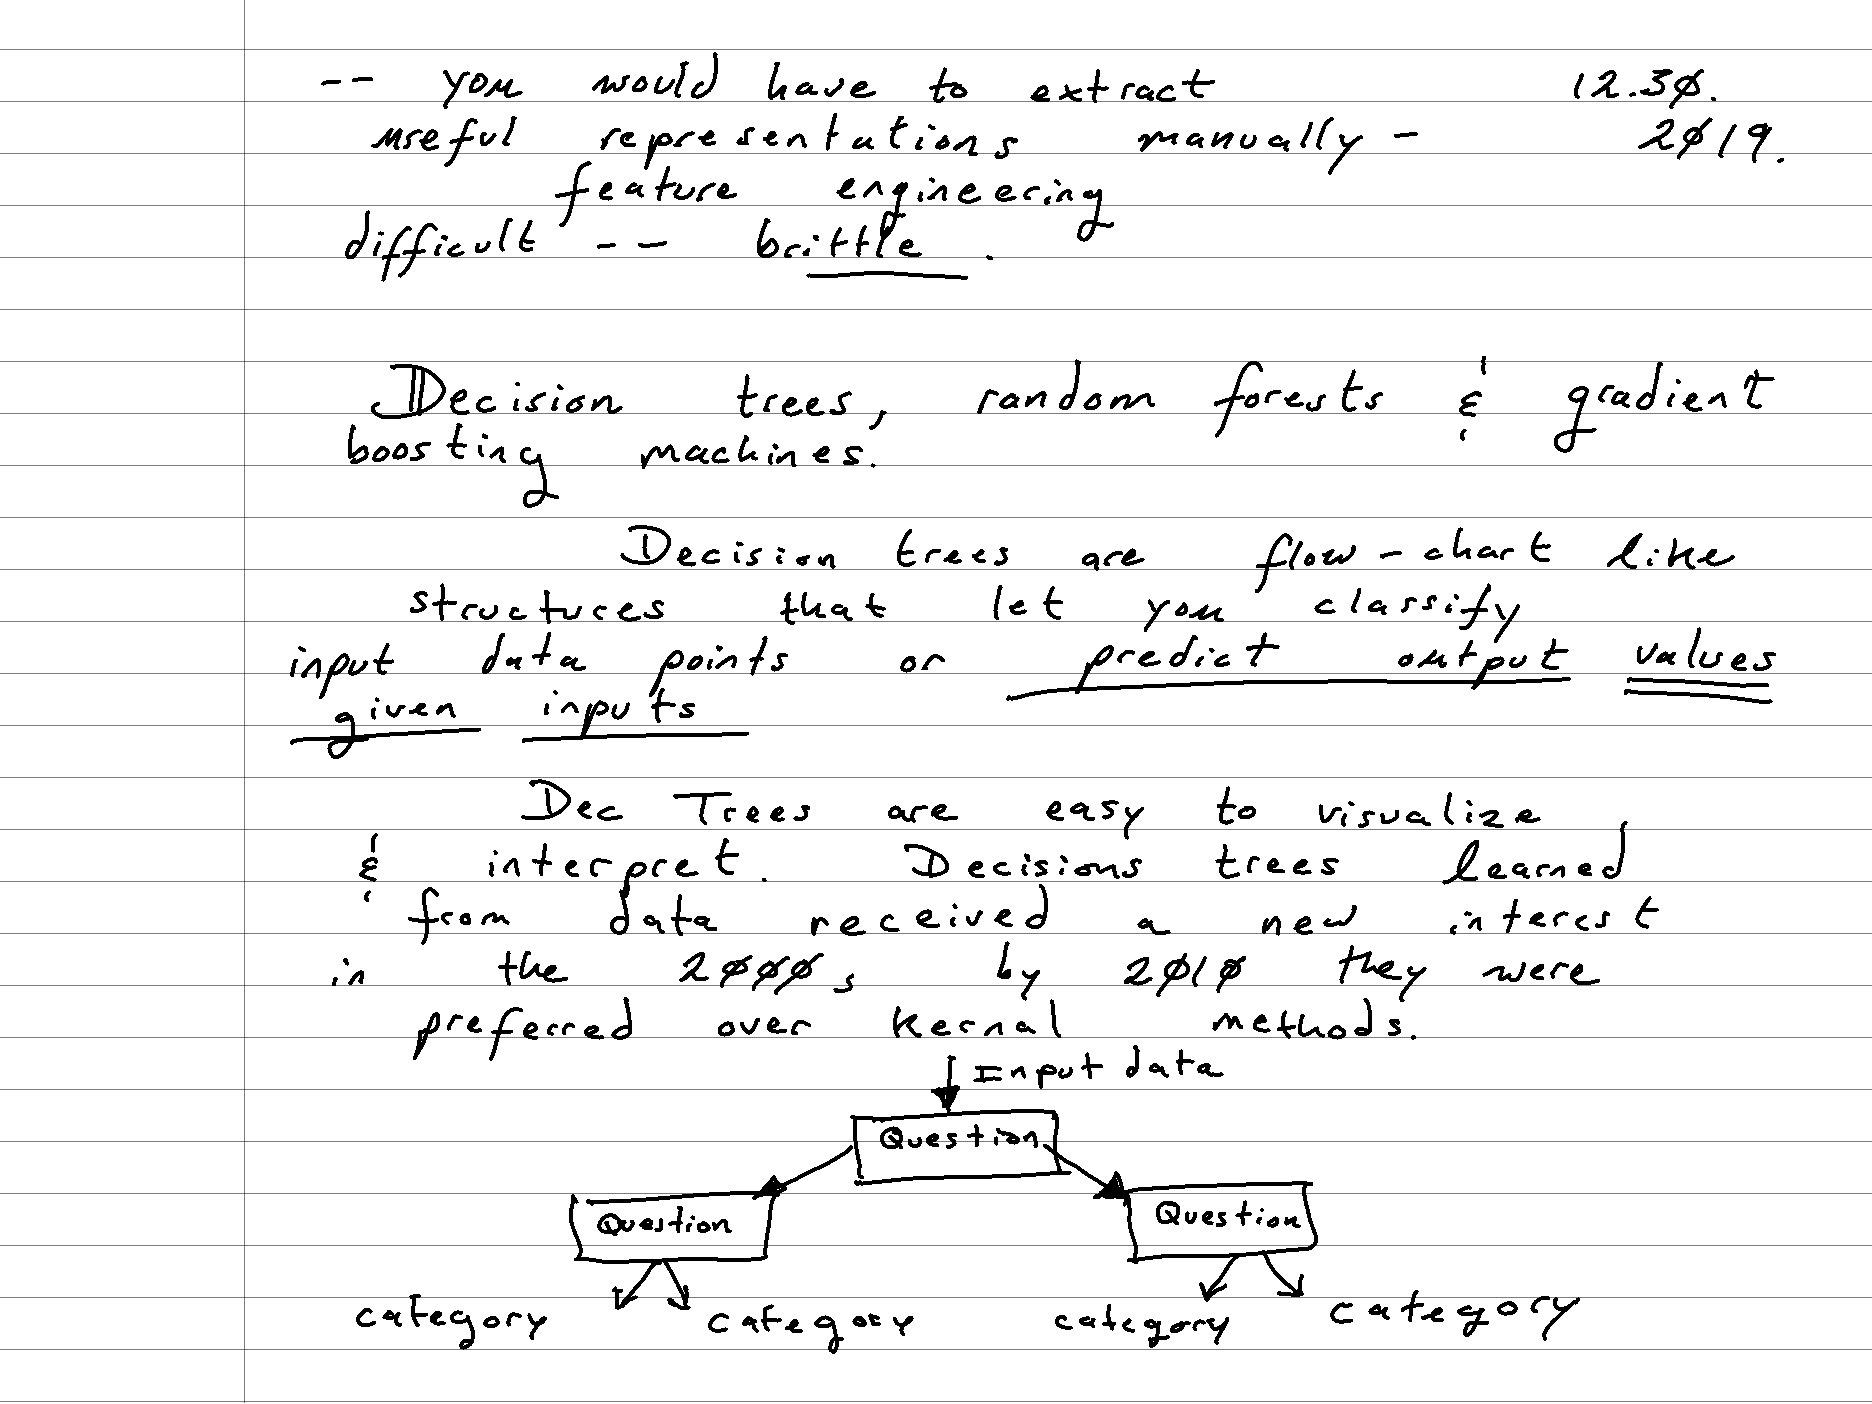 -- you would have to extract 12.30.
useful representations manually - 2019.
feature engineering
difficult -- brittle.
Decision trees, random forests & gradient
boosting machines.
Decision trees are flow-chart like
structures that let you classify
input data points or predict output values
given inputs
Dec Trees are easy to visualize
& interpret. Decisions trees learned
from data received a new interest
in the 2000s by 2010 they were
preferred over kernal methods.
Input data
Question
Question Question
category category category category